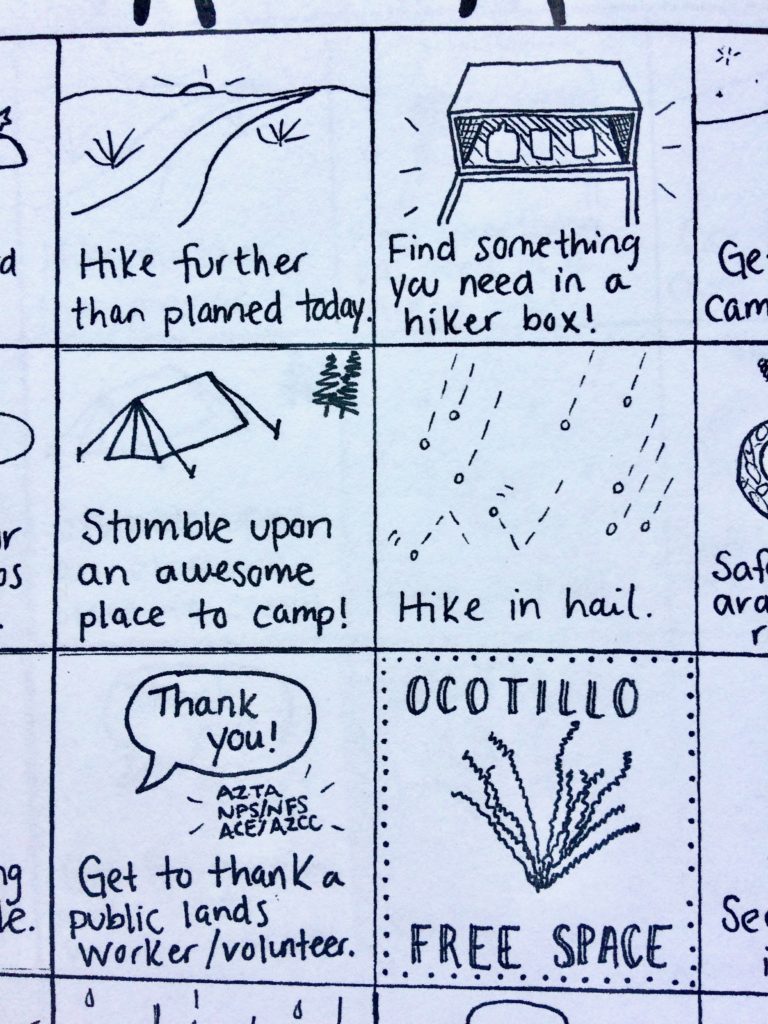 Hike further
than planned today.
Find something
you need in a
hiker box!
Stumble upon
an awesome
place to camp!
Hike in hail.
Thank
you!
AZTA
NPS/NFS
ACE/AZCC
Get to thank a
public lands
worker/volunteer.
OCOTILLO
FREE SPACE